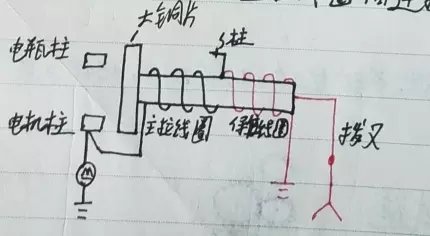 大铜片
电瓶柱
S柱
电机柱
主拉线圈
保持线圈
拨叉
M